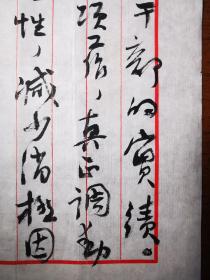 干部的实绩。
项工作，真正调动
性，减少消极因